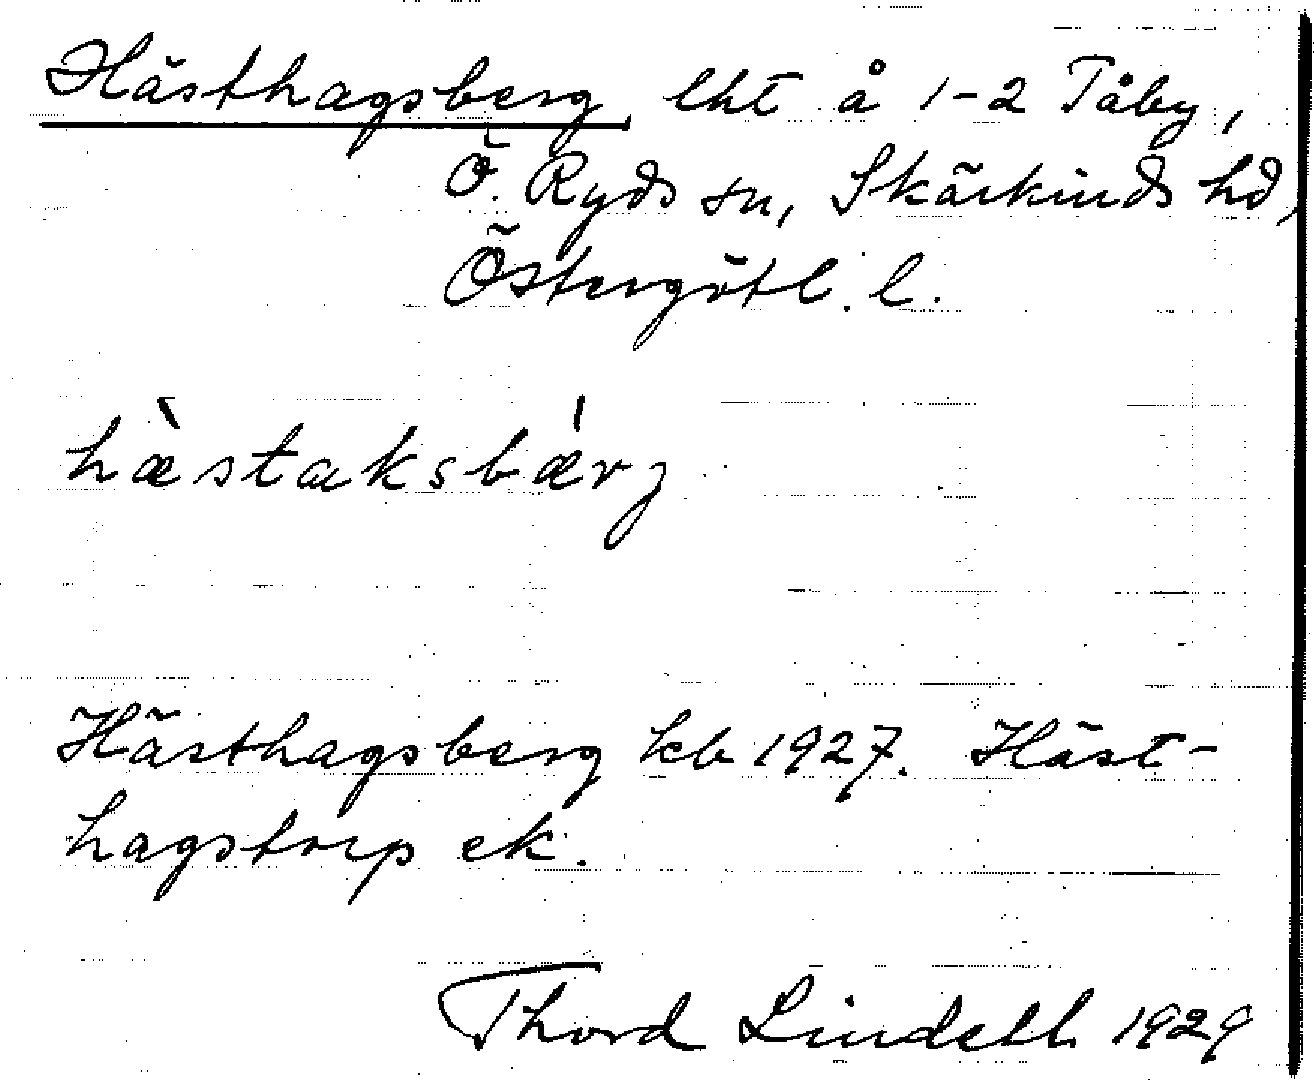 Hästhagsberg lht å 1-2 Tåby,
Ö. Ryds sn, Skärkinds hd,
Östergötl. l.
hæ̀staksbǽrj
Hästhagsberg kb 1927. Häst-
hagstorp ek.
Thord Lindell 1929